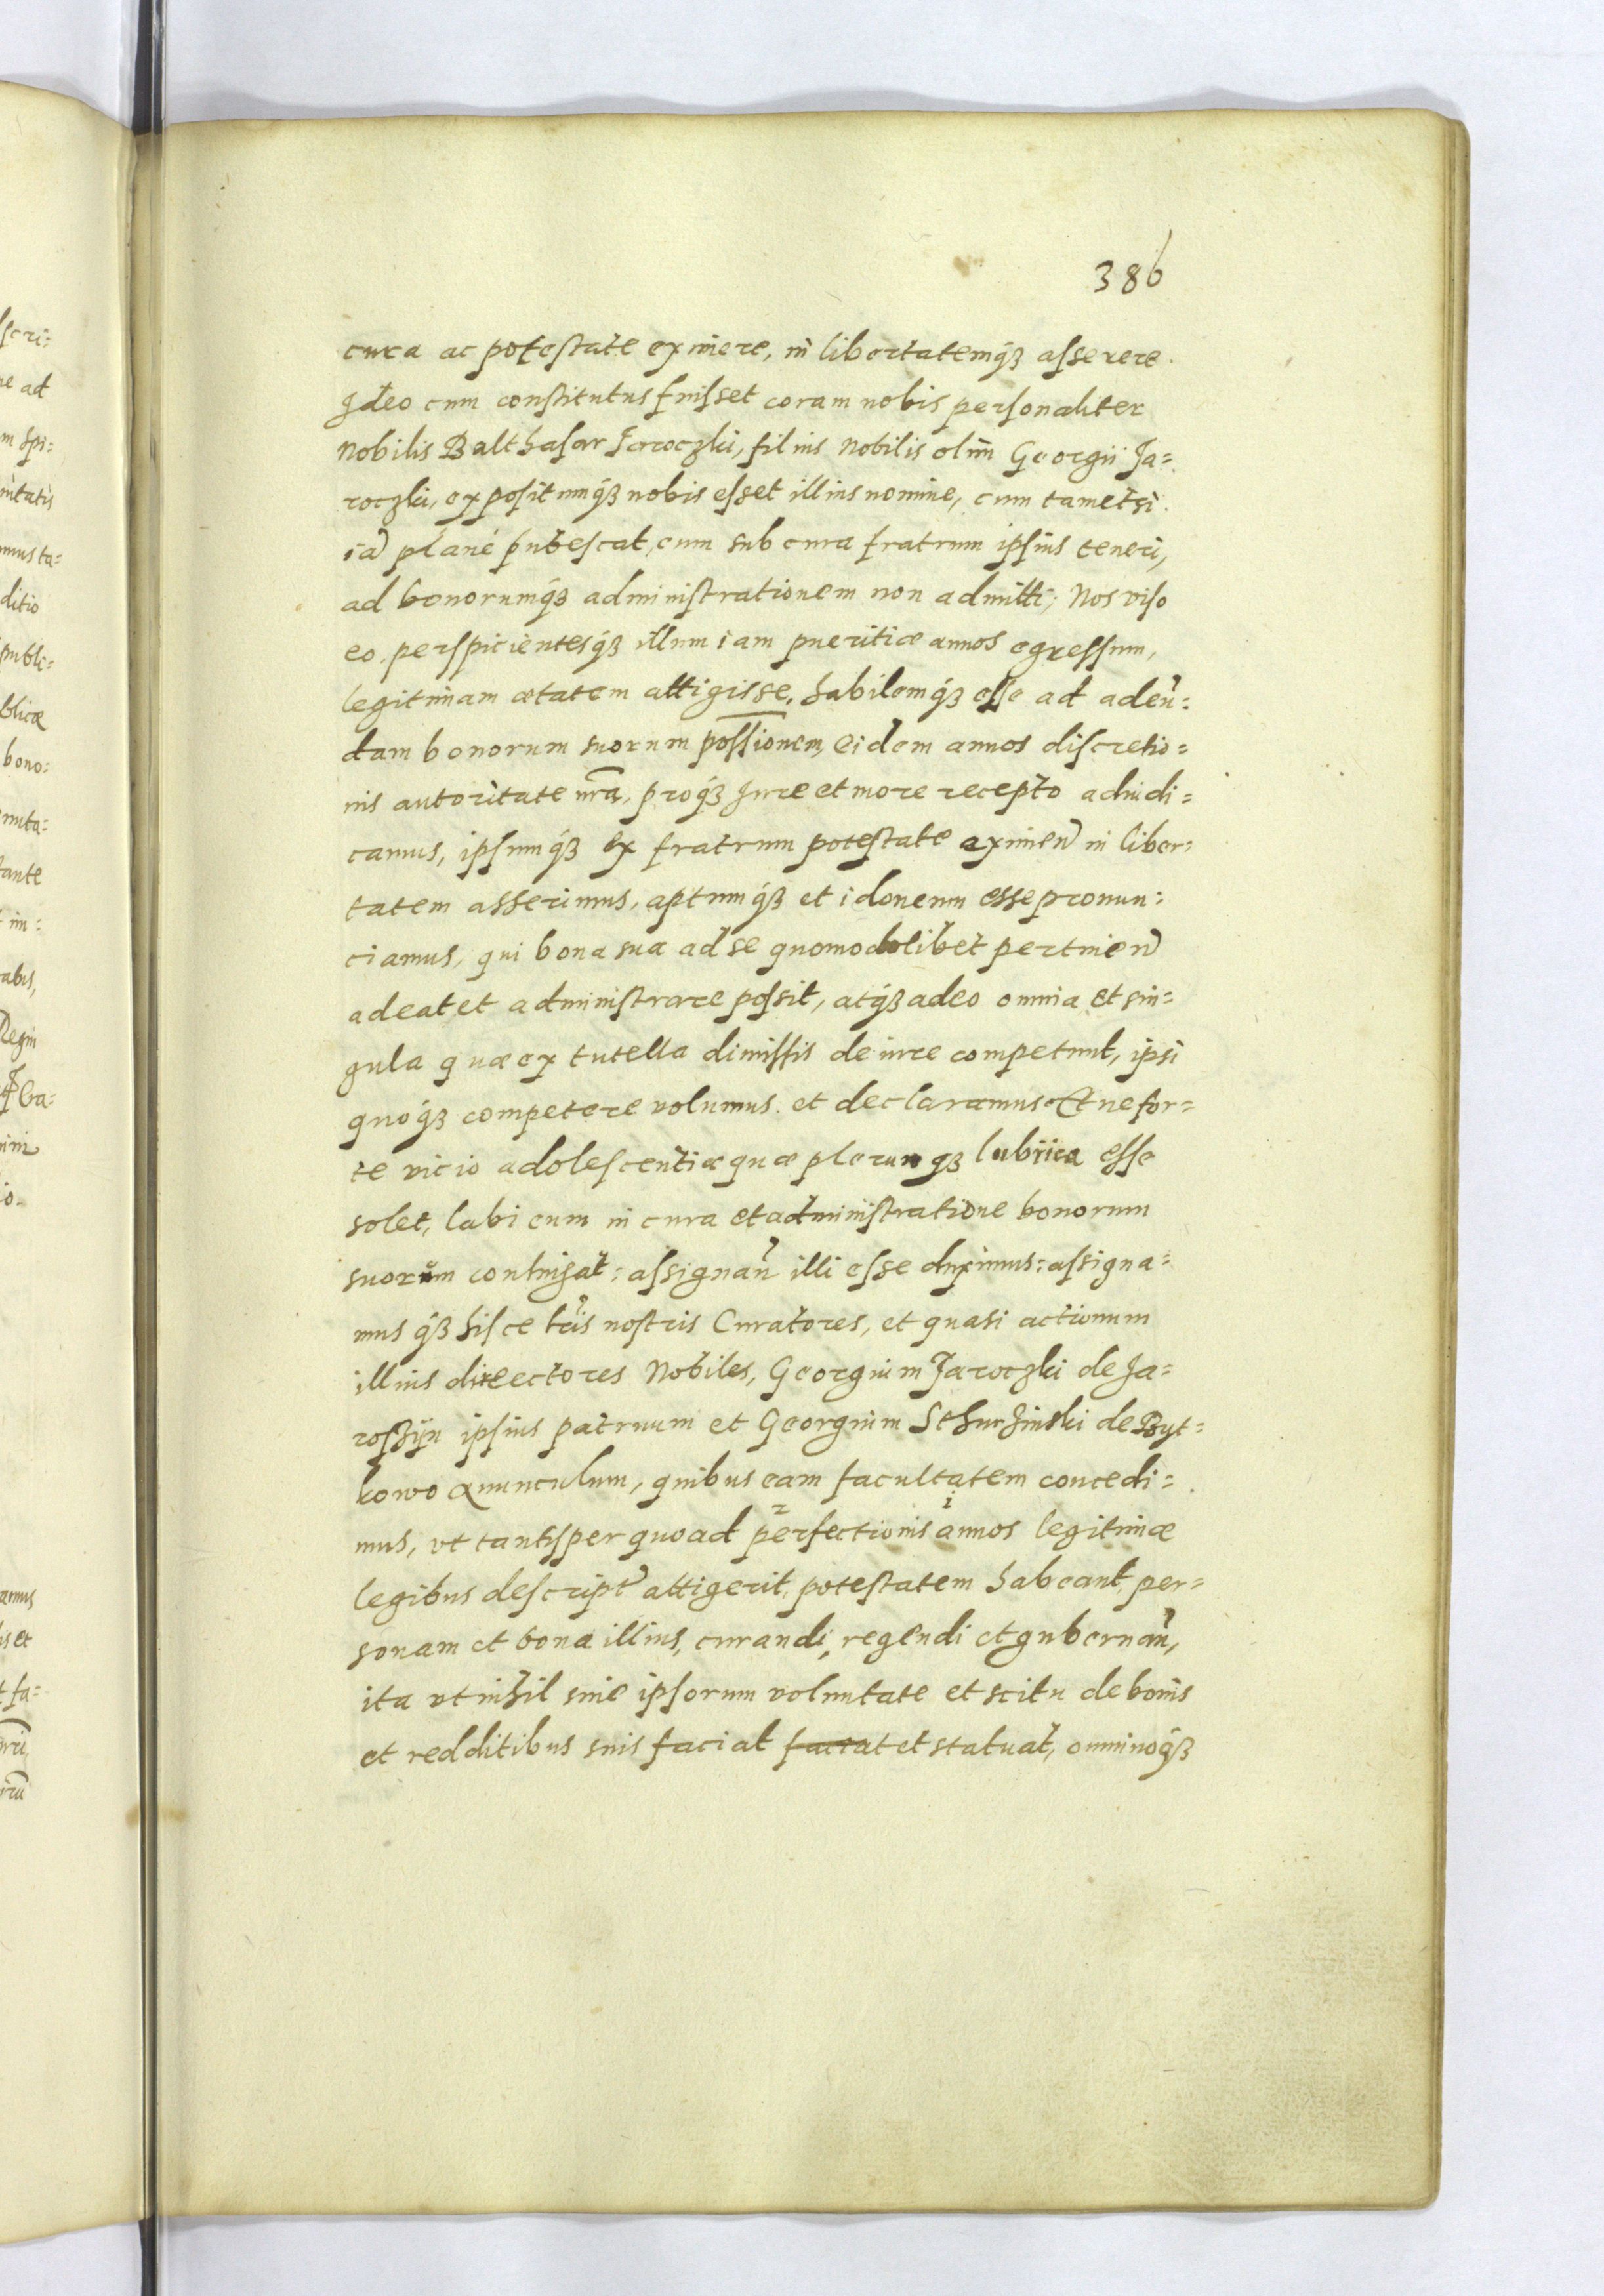 386
cura ac potestate eximere, in libertatemq́ꝫ asserere.
Ideo cum constitutus fuisset coram nobis personaliter
Nobilis Balthasar Jaroczki, filius Nobilis olim Georgii Ja=
roczki, expositumq́ꝫ nobis esset illius nomine, cum tametsi
iã plané pubescat, eum sub cura fratrum ipsius teneri,
ad bonorumq́ꝫ administrationem non admitti; Nos viso
eo, perspicientesq́ꝫ illum iam pueritiæ annos egressum,
legitimam ætatem attigisse, habilemq́ꝫ esse ad adeũ=
dam bonorum suorum possionem, eidem annos discretio=
nis autoritate nrã, proq́ꝫ Jure et more recepto adiudi=
camus, ipsumq́ꝫ ex fratrum potestate eximeñ in liber=
tatem asserimus, aptumq́ꝫ et idoneum esse pronun=
ciamus, qui bona sua ad se quomodolibet pertineñ
adeat et administrare possit, atq́ꝫ adeo omnia et sin=
gula quæ ex tutella dimissis de iure competunt, ipsi
quoq́ꝫ competere volumus et declaramus. Et ne for=
te vicio adolescentiæ quæ plerunqꝫ lubrica esse
solet, labi eum in cura et administratione bonorum
suorum contingat: assignañ illi esse duximus: assigna=
mus q́ꝫ hisce lr̃is nostris Curatores, et quasi actionum
illius directores Nobiles, Georgium Jaroczki de Ja=
rosſzÿn ipsius patruum et Georgium Schurzinski de Byt=
kowo auunculum, quibus eam facultatem concedi=
mus, vt tantisper quoad perfectionis annos legitimæ
2 1
legibus descript̃ attigerit, potestatem habeant, per=
sonam et bona illius, curandi, regendi et gubernañ,
ita vt nihil sine ipsorum voluntate et scitu de bonis
et redditibus suis faciat faciat et statuat, omninoq́ꝫ